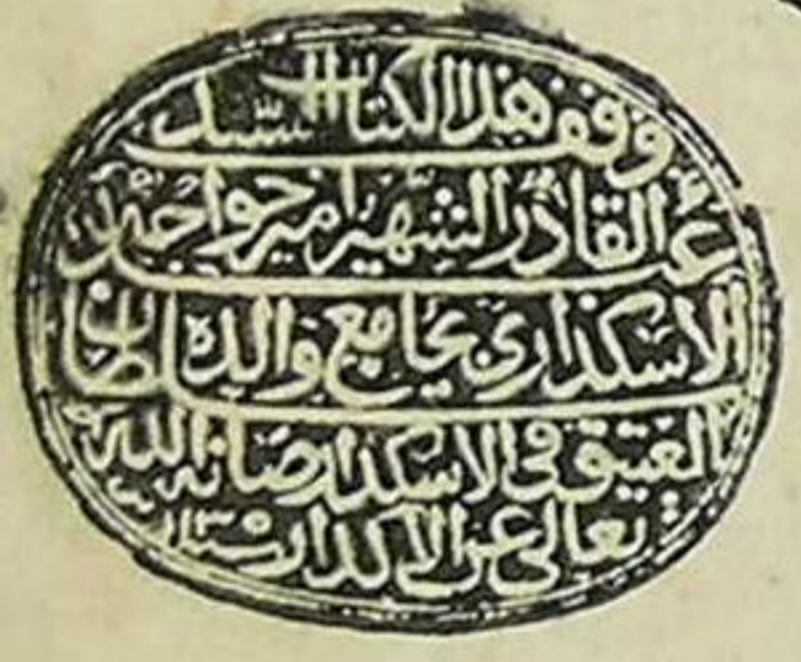 وقف هذا الكتاب السيد
عبد القادر الشهير امير خواجه
الاسكدارى بجامع والده سلطان
العتيق فى الاسكدار صانه الله
تعالى عن الاكدار سنه